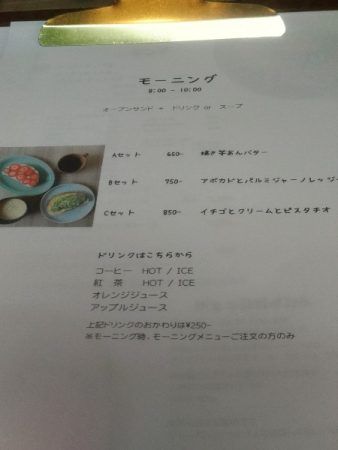 モーニング
8:00 - 10:00
オープンサンド + ドリンク or スープ
Aセット 650- 焼き芋あんバター
Bセット 750- アボカドとパルミジャーノレッジ
Cセット 850- イチゴとクリームとピスタチオ
ドリンクはこちらから
コーヒー HOT / ICE
紅 茶 HOT / ICE
オレンジジュース
アップルジュース
上記ドリンクのおかわりは¥250-
※モーニング時、モーニングメニューご注文の方のみ